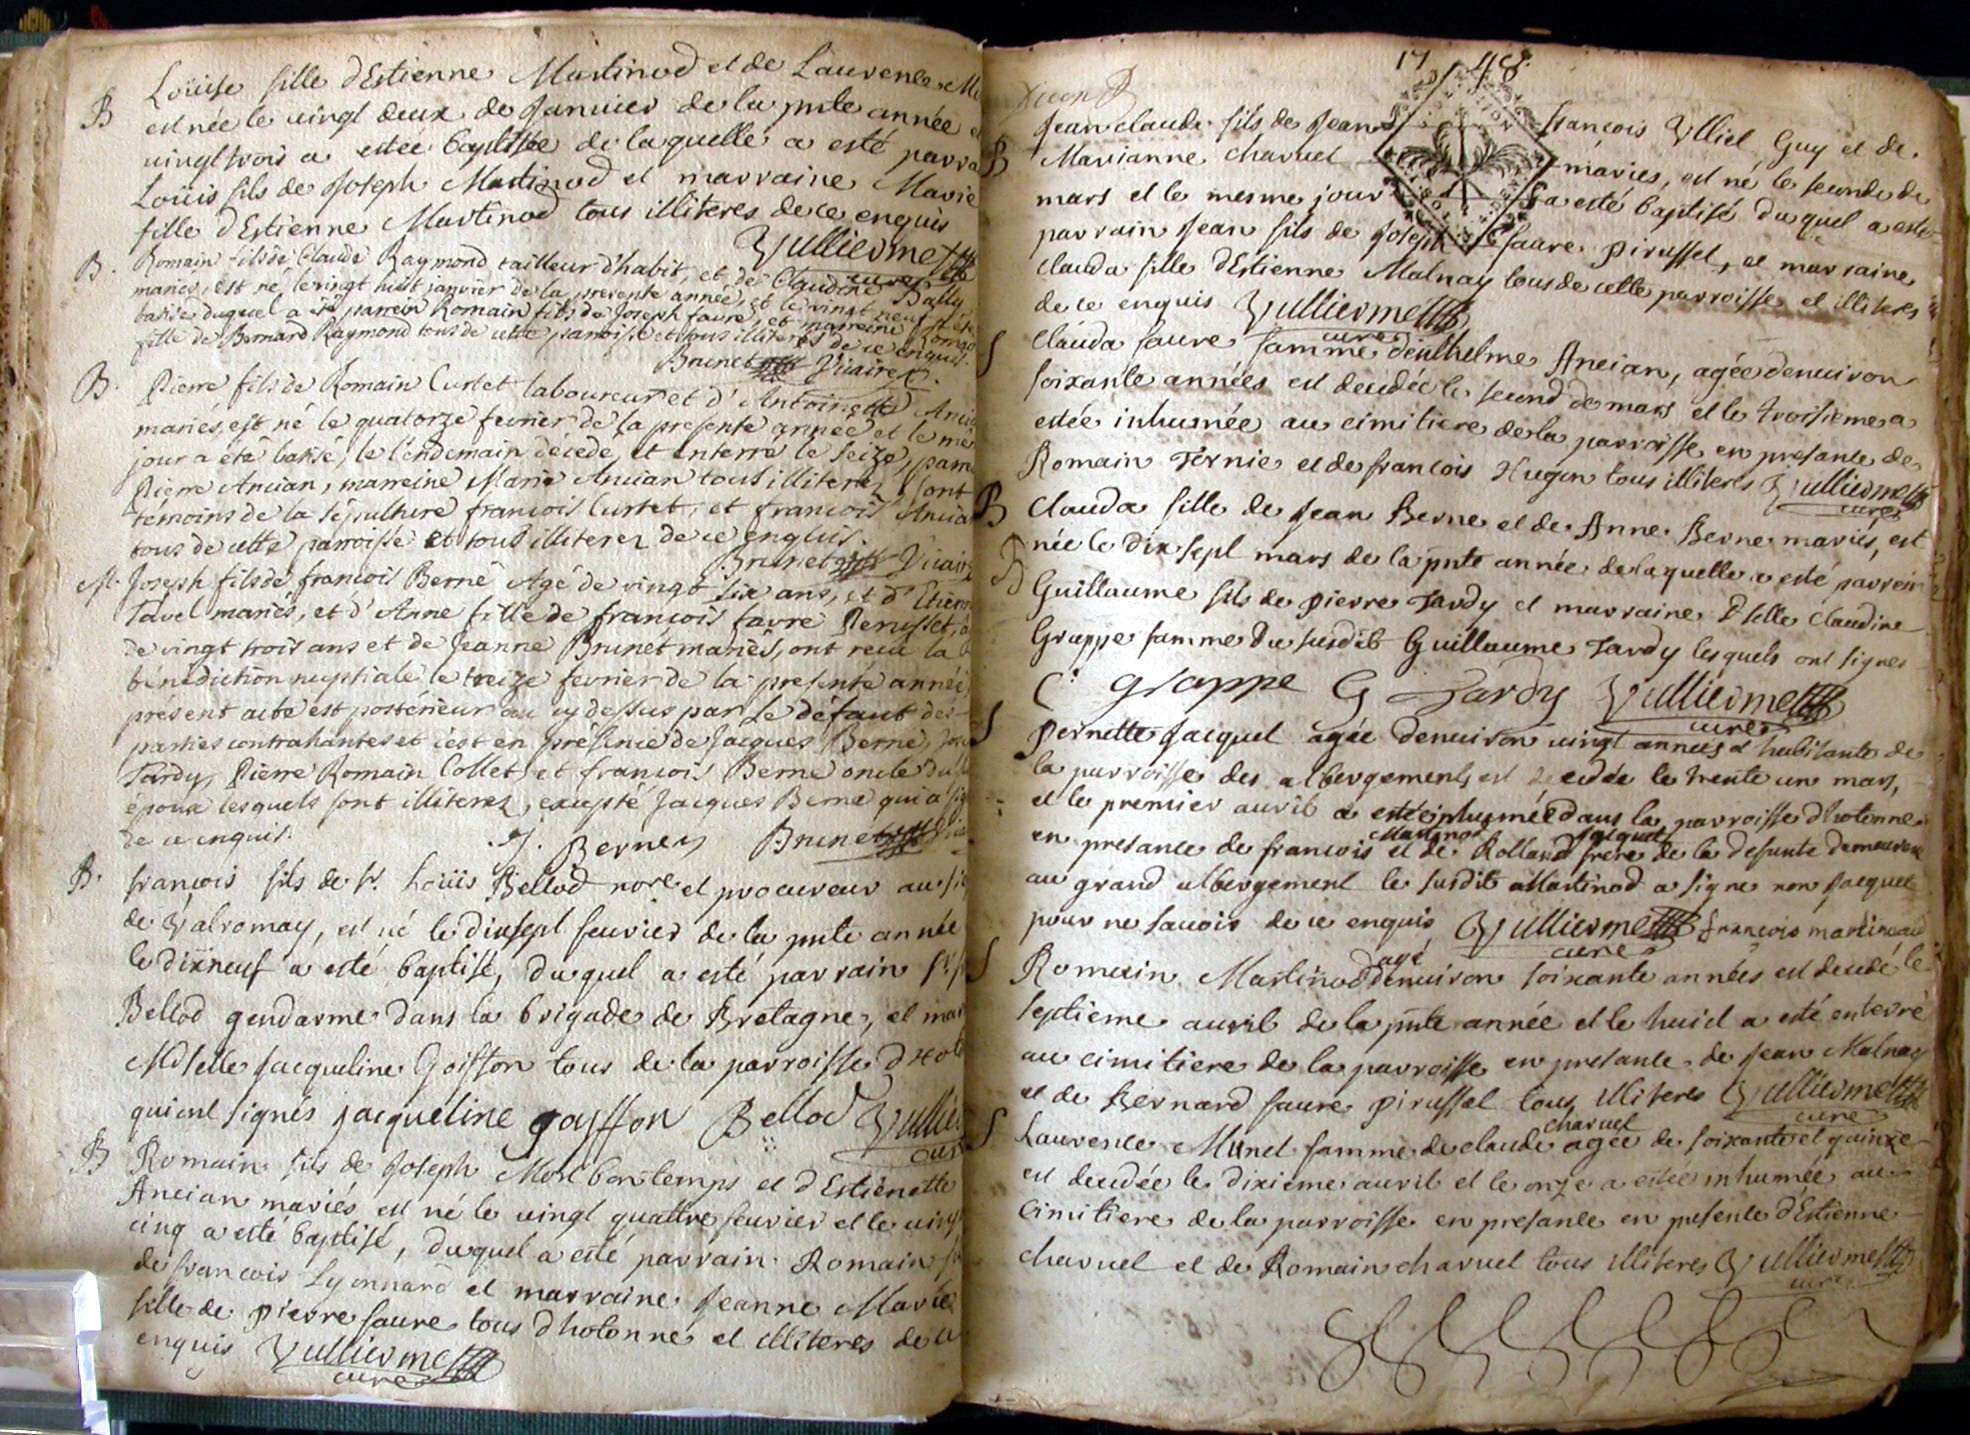 B
Loüise fille d'Estienne Martinod et de Laurence
est née le vingt deux de Janvier de la pnte année
vingt trois a estée baptisée de laquelle a esté parra
Loüis fils de Joseph Martinod et marraine Marie
fille d'Estienne Martinod tous illiteres de ce enquis
Vulliermet
curé
B.
Romain fils de Claude Raymond tailleur d'habit, et de Claudine Bally
mariés, est né le vingt huit janvier de la presente année, et le vingt neuf
batisé duquel a été parrein Romain fils de Joseph faure, et marreine
fille de Bernard Raymond tous de cette parroisse et tous illiterés de ce enquis.
Brunet Vicaire
B.
Pierre fils de Romain Curtet laboureur et d'Antoinette Anci
mariés, est né le quatorze fevrier de la presente année et le me
jour a été batisé, le l'endemain décédé, et enterré le seize, parre
Pierre Ancian, marreine Marie Ancian tous illiterez, sont
témoins de la sépulture francois Curtet, et francois Ancian
tous de cette parroisse et tous illiterez de ce enquis.
Brunet Vicaire
M.
Joseph fils de francois Berne Agé de vingt six ans, et d'Etien
Tavel mariés, et d'Anne fille de francois favre Perusset,
de vingt trois ans et de Jeanne Brunet mariés, ont recu la
bénédiction nuptiale le treize fevrier de la presente année,
présent acte est postérieur au cy dessus par le défaut des
parties contrahantes et c'est en présence de Jacques Berne,
Tardy, Pierre Romain Collet, et francois Berne oncle du
époux lesquels sont illiterez, excepté Jacques Berne qui a sig
de ce enquis.
J. Berne Brunet
B.
francois fils de Sr. Loüis Bellod nore et procureur au
de Valromay, est né le dixsept feuvrier de la pnte année
le dixneuf a esté baptisé, duquel a esté parrain Sr
Bellod gendarme dans la brigade de Bretagne, et mar
Mdselle Jacqueline Goiffon tous de la parroisse d'Hot
qui ont signés jacqueline goyffon Bellod Vullier
curé
B
Romain fils de Joseph Morel bontemps et d'Estienette
Ancian mariés est né le vingt quattre feuvrier et le vingt
cinq a esté baptisé, duquel a esté parrain Romain
de francois Lyonnard et marraine Jeanne Marie
fille de pierre faure tous d'hotonne et illiteres de ce
enquis Vulliermet
curé
1748.
B
Jean claude fils de Jean francois Vlliet Guy et de
Marianne charvet mariés, est né le second de
mars et le mesme jour a esté baptisé duquel a esté
parrain Jean fils de Joseph faure pirusset, et marraine
clauda fille d'Estienne Malnay tous de cette parroisse et illiteres
de ce enquis Vulliermet
curé
S
Clauda faure famme d'enthelme Ancian, agée denuiron
soixante années est decedée le second de mars et le troisieme a
estée inhumée au cimitiere de la parroisse en presance de
Romain Fernie et de francois Hugon tous illiteres Vulliermet
curé
B
Clauda fille de Jean Berne et de Anne Berne mariés, est
née le dix sept mars de la pnte année de laquelle a esté parrein
Guillaume fils de pierre Tardy et marraine Dselle Claudine
Grappe famme du susdit Guillaume Tardy lesquels ont signés
C. grappe G Tardy Vulliermet
curé
S
pernette Jacquet agée denuiron vingt années et habitante de
la parroisse des albergements est decedée le trente un mars,
et le premier auril a estée inhumée dans la parroisse d'hotonne
en presance de francois Martinod et de Rolland Jacquet frere de la defunte demeurant
au grand albergement le susdit Martinod a signe non Jacquet
pour ne sauoir de ce enquis Vulliermet francois martinaud
curé
S
Romain Martinod agé denuiron soixante années est decedé le
septieme auril de la pnte année et le huict a esté enterré
au cimitiere de la parroisse en presance de Jean Malnay
et de Bernard faure pirusset tous illiteres Vulliermet
curé
S
Laurence Munet famme de claude charvet agée de soixante et quinze
est decedée le dixieme auril et le onze a estée inhumée au
cimitiere de la parroisse en presance en presente d'Estienne
charvet et de Romain charvet tous illiteres Vulliermet
curé